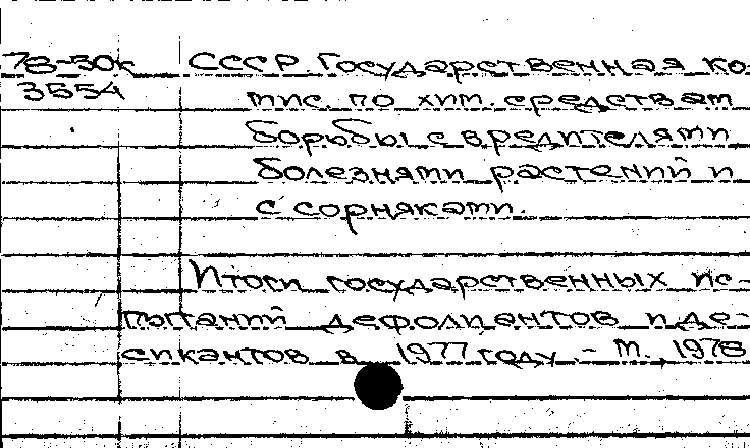 78-30к СССР. Государственная ко-
3554
мис. по хим. средствам
борьбы с вредителями
болезнями растений и
с сорняками.
Итоги государственных ис-
пытаний дефолиантов и де-
сикантов в 1977 году. - М., 1978